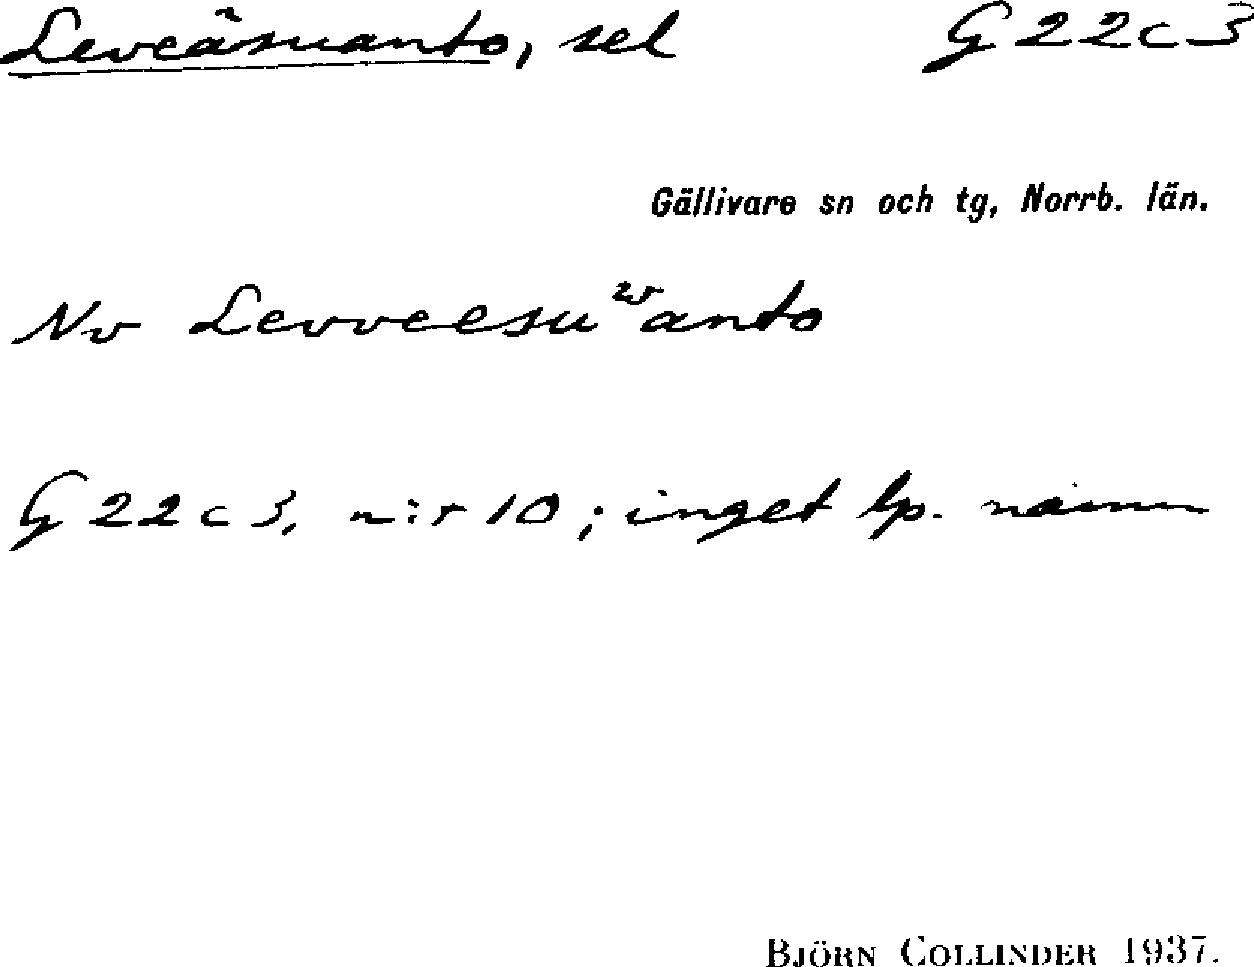 Leveäsuanto, sel G 22 c 3
Gällivare sn och tg, Norrb. län.
Nv Levveesuʷanto
G 22 c 3, n:r 10; inget lp. namn
BJÖRN COLLINDER 1937.